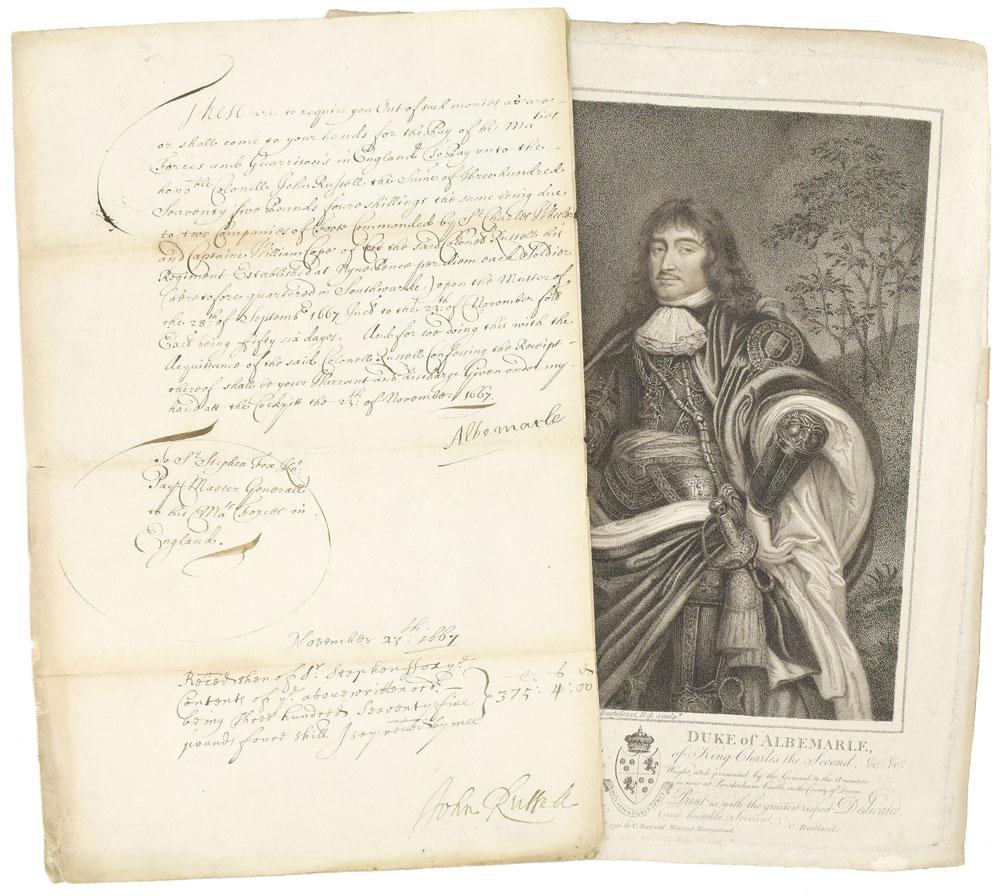 These are to require you Out of such monies as are
or shall come to your hands for the Pay of his Ma ties
Forces and Guarrison's in England To Pay unto the
hono:ble Colonell John Russell the Sume of Three hundred
Seaventy five Pounds foure shillings the same being due
to two Companies of Foote Commanded by Sr. Charles Wheeler
and Captaine William Cope of the said Colonell Russells his
Regiment Established at Nyne Pence per diem each Soldier
(heretofore quartered in Southwarke) upon the Muster of
the 28th. of Septembr 1667 to the 23th. of November
Each being fifty six dayes. And for soe doeing this with the
Acquittance of the said Colonell Russell Confessing the Receipt
thereof shall be your Warrant and discharge Given under my
hand att the Cockpitt the of November 1667.
Albemarle
To Sr. Stephen Fox Knt.
Pay Master Generall
to his Mats Forces in
England.
November 1667
Reced then of Sr. Stephen Fox ye
Contents of ye abovewritten ordr.
being three hundred Seaventy five
pounds foure shill. I say reced by mee
375: 4: 00
John Russell
Bartolozzi, R.A. sculpt.
DUKE of ALBEMARLE,
of King Charles the Second, &c. &c.
and presented by the General to the Ancestors
is now at Powderham Castle, in the County of Devon.
Print is, with the greatest respect, Dedicated.
and humble Servant, C. Restland.
by C. Hampstead.